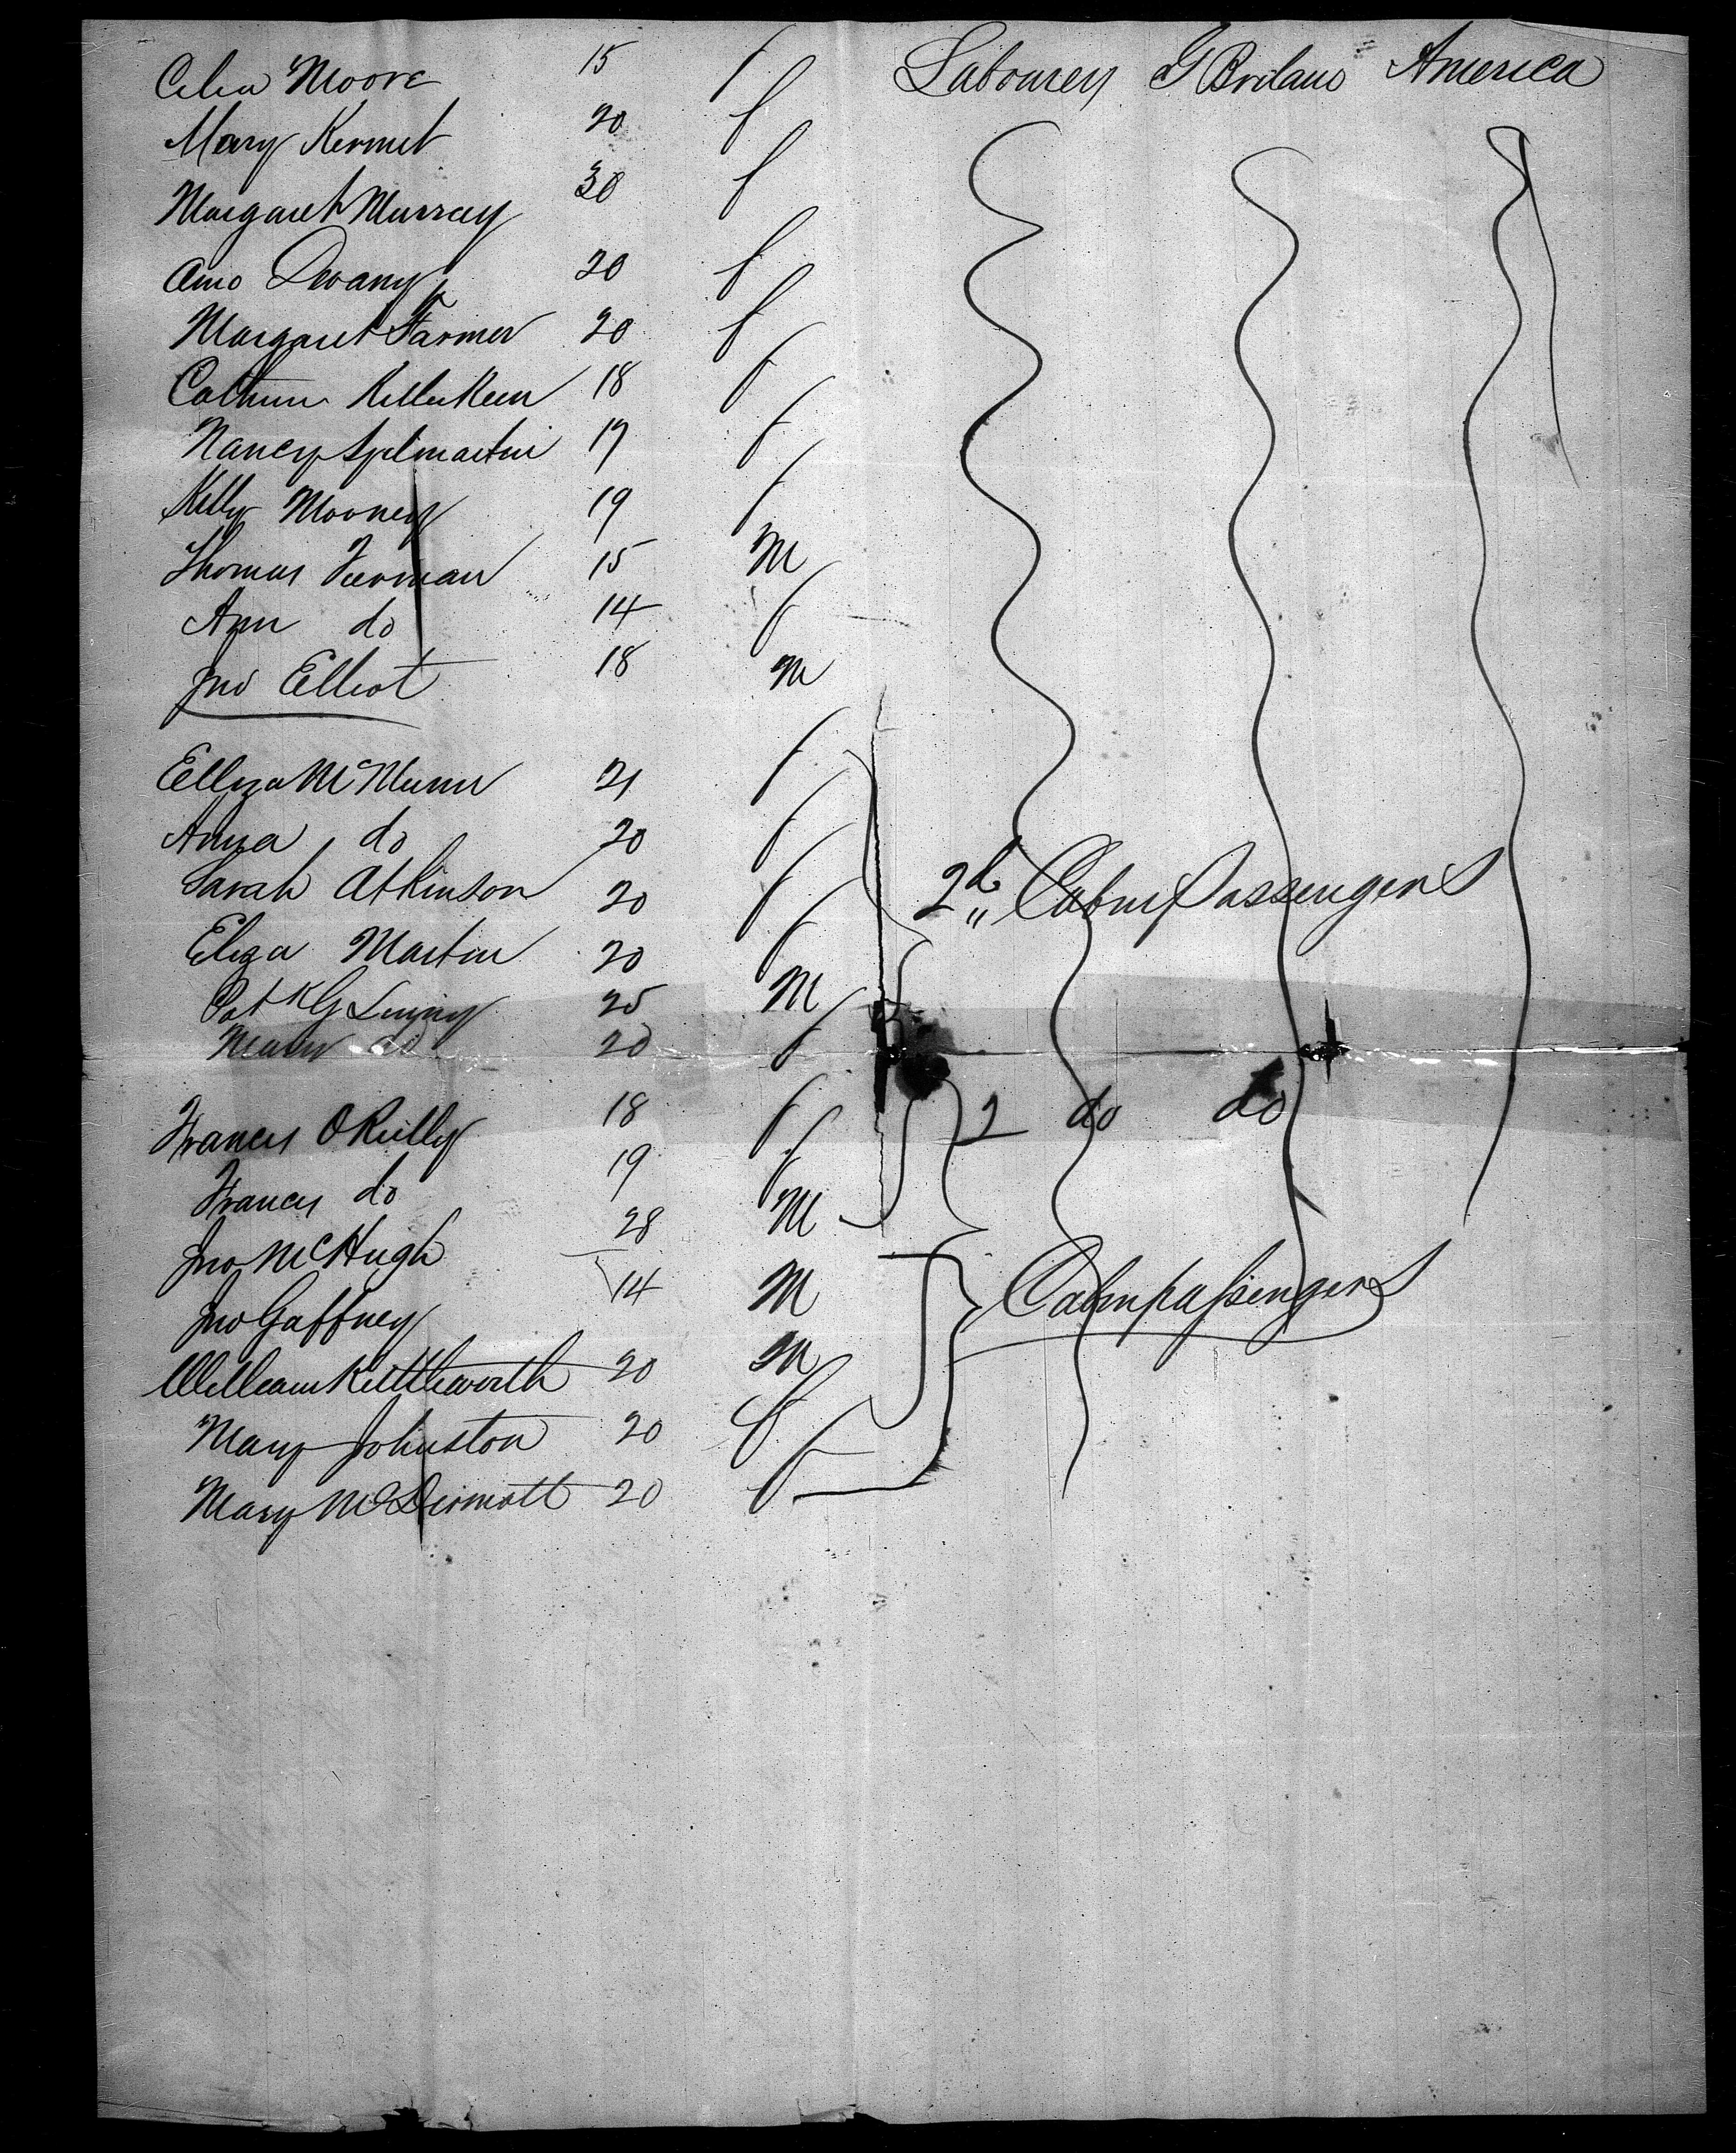 Celia Moore 15 f Labourer G Britain America
Mary Kermet 20 f
Margaret Murray 30 f
Ann Devany 20 f
Margaret Farmer 20 f
Cathrin 18 f
Nancy Spelmartin 19 f
Kelly Mooney 19 f
Thomas 15 M
Ann do 14 f
Jno Elliot 18 M
Elliza McMunn 21 f
Anna do 20 f
Sarah Atkinson 20 f 2d Cabin Passengers
Eliza Martin 20 f
Patk G 25 M
Mary do 20 f
Francis O Reilly 18 f 2 do do
Francis do 19 f
Jno McHugh 28 M
Jno Gaffney 14 M Cabin passengers
William Kettleworth 20 M
Mary Johnston 20 f
Mary McDermott 20 f